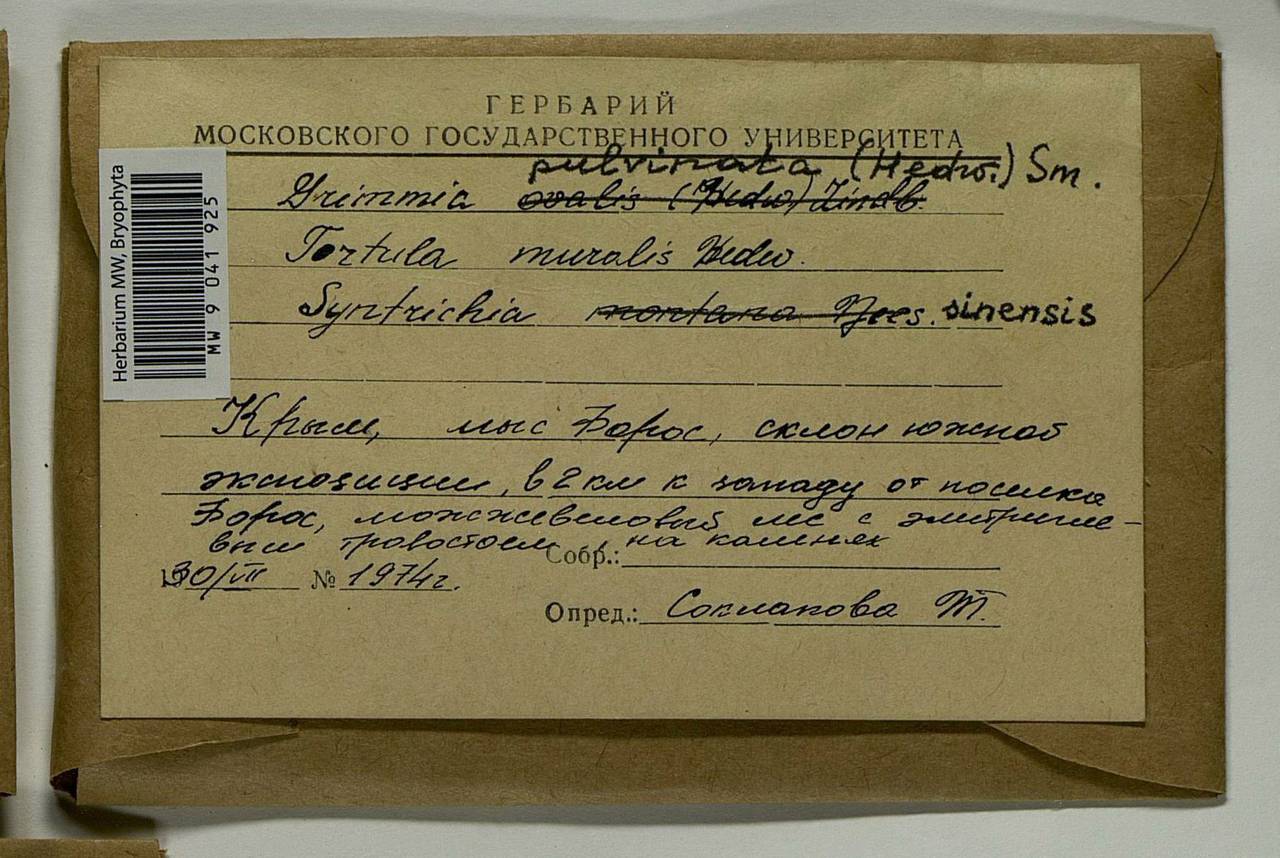 ГЕРБАРИЙ
МОСКОВСКОГО ГОСУДАРСТВЕННОГО УНИВЕРСИТЕТА
pulvinata (Hedw.) Sm.
Grimmia ovalis (Hedw) Lindb.
Tortula muralis Hedw.
Syntrichia montana Nees. sinensis
Крым, мыс Форос, склон южной
экспозиции, в 2 км к западу от поселка
Форос, можжевеловый лес с
травостоем, на камнях
Собр.:
30/VII № 1974г.
Опред.: Т.
Herbarium MW, Bryophyta
MW 9 041 925